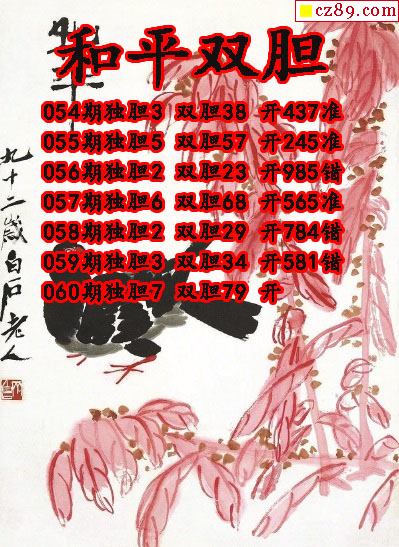 cz89.com
和平
和平双胆
054期独胆3 双胆38 开437准
055期独胆5 双胆57 开245准
056期独胆2 双胆23 开985错
057期独胆6 双胆68 开565准
058期独胆2 双胆29 开784错
059期独胆3 双胆34 开581错
060期独胆7 双胆79 开
九十二岁白石老人